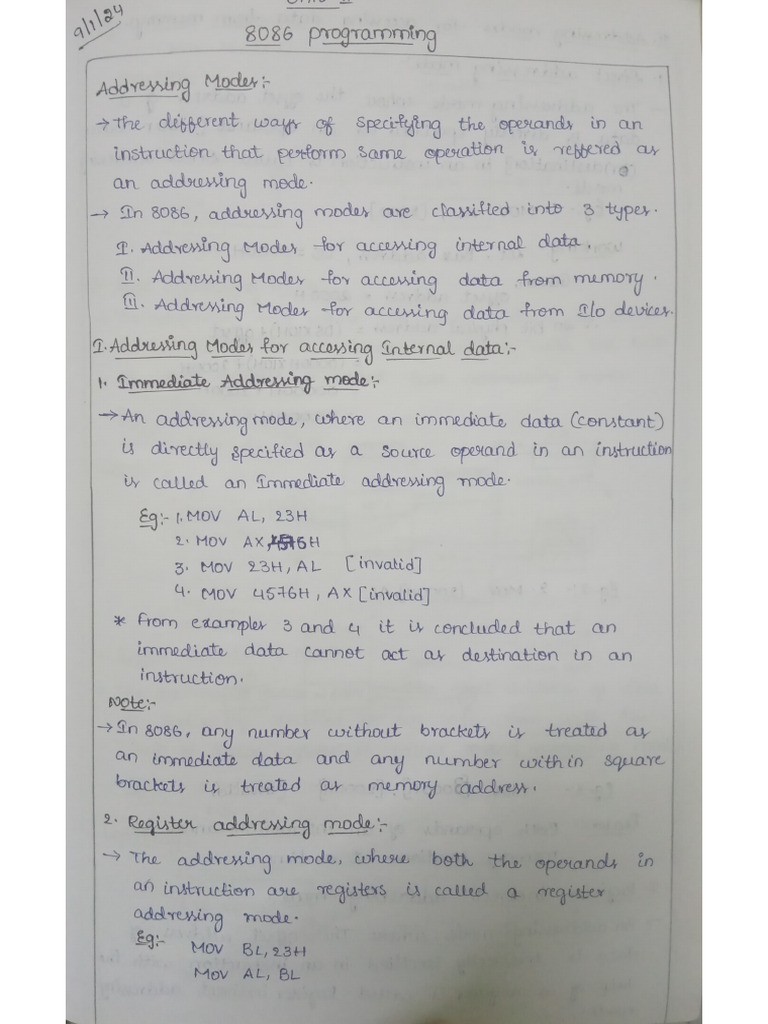 9/1/24
8086 programming
Addressing Modes:-
→ The different ways of specifying the operands in an
instruction that perform same operation is reffered as
an addressing mode.
→ In 8086, addressing modes are classified into 3 types.
I. Addressing Modes for accessing internal data.
II. Addressing Modes for accessing data from memory.
III. Addressing Modes for accessing data from I/o devices.
I. Addressing Modes for accessing Internal data:-
1. Immediate Addressing mode:-
→ An addressing mode, where an immediate data (constant)
is directly specified as a source operand in an instruction
is called an Immediate addressing mode.
Eg:- 1. MOV AL, 23H
2. MOV AX, 4576H
3. MOV 23H, AL [invalid]
4. MOV 4576H, AX [invalid]
* From examples 3 and 4 it is concluded that an
immediate data cannot act as destination in an
instruction.
Note:-
→ In 8086, any number without brackets is treated as
an immediate data and any number with in square
brackets is treated as memory address.
2. Register addressing mode:-
→ The addressing mode, where both the operands in
an instruction are registers is called a register
addressing mode.
Eg:- MOV BL, 23H
MOV AL, BL